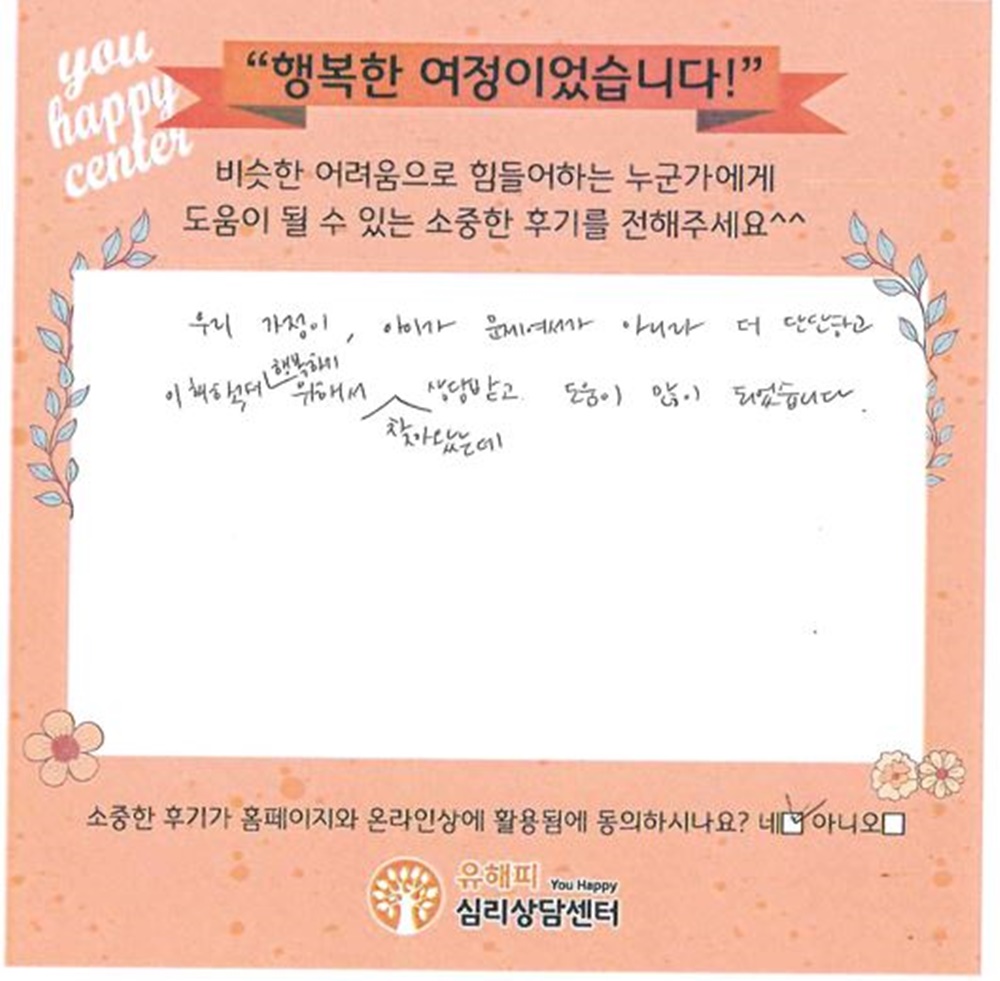 you
happy
center
“행복한 여정이었습니다!”
비슷한 어려움으로 힘들어하는 누군가에게
도움이 될 수 있는 소중한 후기를 전해주세요^^
우리 가정이, 아이가 문제여서가 아니라 더 단단하고
행복하기
위해서 상담받고 도움이 많이 되었습니다.
찾아왔는데
소중한 후기가 홈페이지와 온라인상에 활용됨에 동의하시나요? 네 아니오
유해피 You Happy
심리상담센터